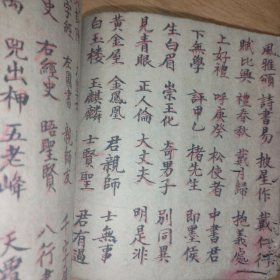 風雅頌 詩書易 披星作 戴仁行
賦比興 禮春秋 戴月歸 抱義處
上好禮 呼庚癸 松使者 中書君
下無學 評甲乙 楮先生 即墨侯
生白眉 崇王化 奇男子 別同異
見青眼 正人倫 大丈夫 明是非
黃金屋 金鳳凰 君親師 士無事
白玉楼 玉麒麟 士賢聖 君有過
右經史 晤聖賢 八行書
兕出柙 五老峰 天